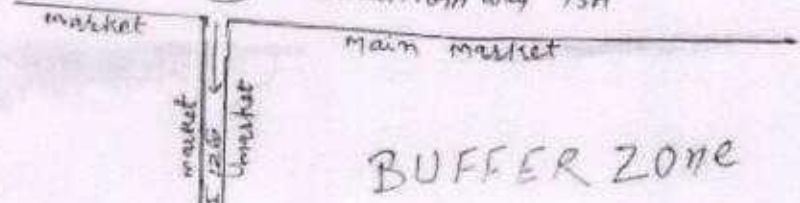 market
Main market
market
market
BUFFER ZONE